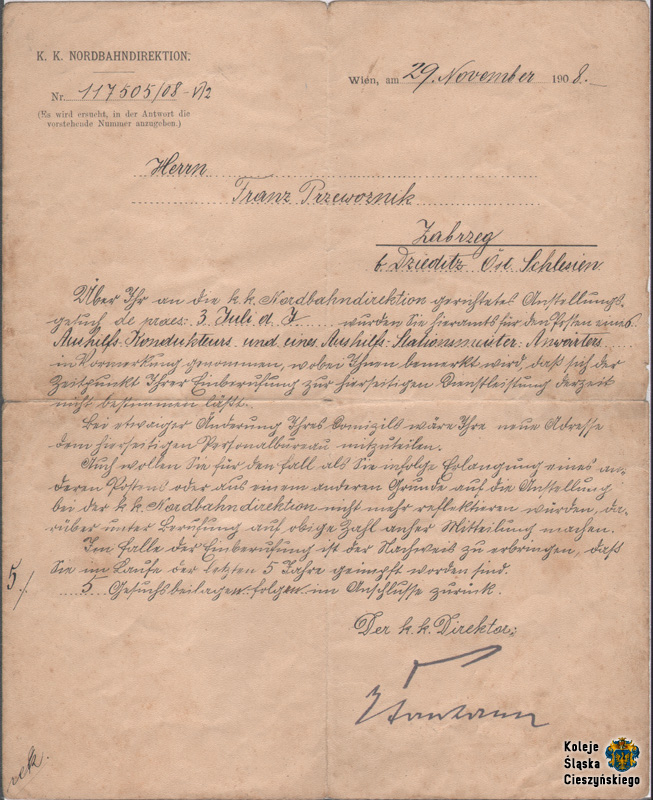 K. K. NORDBAHNDIREKTION.
Nr. 117505/08-V/2
(Es wird ersucht, in der Antwort die
vorstehende Nummer anzugeben.)
Wien, am 29. November 1908.
Herrn
Franz Przewoznik
Zabrzeg
b. Dzieditz Öst. Schlesien
Über Ihr an die k. k. Nordbahndirektion gerichtetes Anstellungs-
gesuch de praes: 3. Juli d. J. wurden Sie hieramts für den Posten eines
Aushilfs-Kondukteurs und eines Aushilfs-Stationsmeister-Anwärters
in Vormerkung genommen, wobei Ihnen bemerkt wird, daß sich der
Zeitpunkt Ihrer Einberufung zur hierseitigen Dienstleistung derzeit
nicht bestimmen läßt.
Bei etwaiger Änderung Ihres Domizils wäre Ihre neue Adresse
dem hierseitigen Personalbureau mitzuteilen.
Auch wollen Sie für den Fall als Sie infolge Erlangung eines an-
deren Postens oder aus einem anderen Grunde auf die Anstellung
bei der k. k. Nordbahndirektion nicht mehr reflektieren würden, da-
rüber unter Berufung auf obige Zahl anher Mitteilung machen.
Im Falle der Einberufung ist der Nachweis zu erbringen, daß
Sie im Laufe der letzten 5 Jahre geimpft worden sind.
5 Gesuchsbeilagen folgen im Anschlusse zurück.
5/.
Der k. k. Direktor:
Koleje
Śląska
Cieszyńskiego